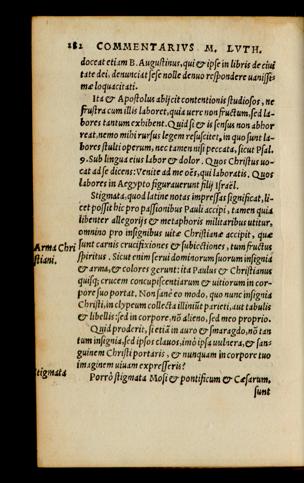 182 COMMENTARIVS M. LVTH.
doceat etiam B. Augustinus, qui & ipse in libris de ciui
tate dei, denunciat sese nolle denuo respondere uaniss⸗
mæ loquacitati.
Ita & Apostolus abijcit contentionis studiosos, ne
frustra cum illis laboret, quia uere non fructum, sed la⸗
bores tantum exhibent. Quid si & is sensus non abhor
reat, nemo mihi rursus legem resuscitet, in quo sunt la⸗
bores stulti operum, nec tamen nisi peccata, sicut Psal.
9. Sub lingua eius labor & dolor. Quos Christus uo⸗
cat ad se dicens: Venite ad me oēs, qui laboratis. Quos
labores in Aegypto figurauerunt filij Israël.
Stigmata, quod latine notas impressas significat, li⸗
cet possit hic pro passionibus Pauli accipi, tamen quia
libenter allegorijs & metaphoris militaribus utitur,
omnino pro insignibus uitæ Christianæ accipit, quæ
Arma Chri
stiani.
sunt carnis crucifixiones & subiectiones, tum fructus
spiritus. Sicut enim serui dominorum suorum insignia
& arma, & colores gerunt: ita Paulus & Christianus
quisq; crucem concupiscentiarum & uitiorum in cor⸗
pore suo portat. Non sanè eo modo, quo nunc insignia
Christi, in clypeum collecta illinūt parieti, aut tabulis
& libellis: sed in corpore, nō alieno, sed meo proprio.
Quid proderit, si etiā in auro & smaragdo, nō tan
tum insignia, sed ipsos clauos, imò ipsa uulnera, & san⸗
guinem Christi portaris, & nunquam in corpore tuo
imaginem uiuam expresseris?
Stigmata
Porrò stigmata Mosi & pontificum & Cæsarum,
sunt